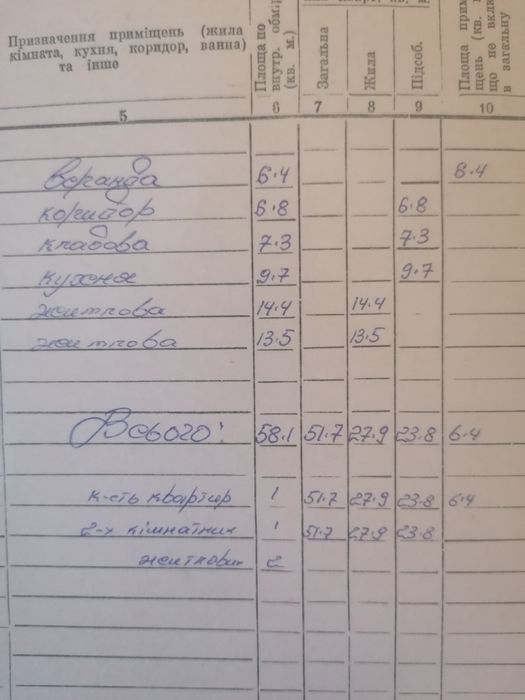 Призначення приміщень (жила
кімната, кухня, коридор, ванна)
та інше
Площа по
внутр. обмі
(кв. м.)
Загальна
Жила
Підсоб.
Площа прим
щень (кв.
що не вкл
в загальну
5 6 7 8 9 10
веранда 6.4 6.4
коридор 6.8 6.8
кладова 7.3 7.3
кухня 9.7 9.7
житлова 14.4 14.4
житлова 13.5 13.5
Всього: 58.1 51.7 27.9 23.8 6.4
к-сть квартир 1 51.7 27.9 23.8 6.4
2-х кімнатних 1 51.7 27.9 23.8
житлових 2